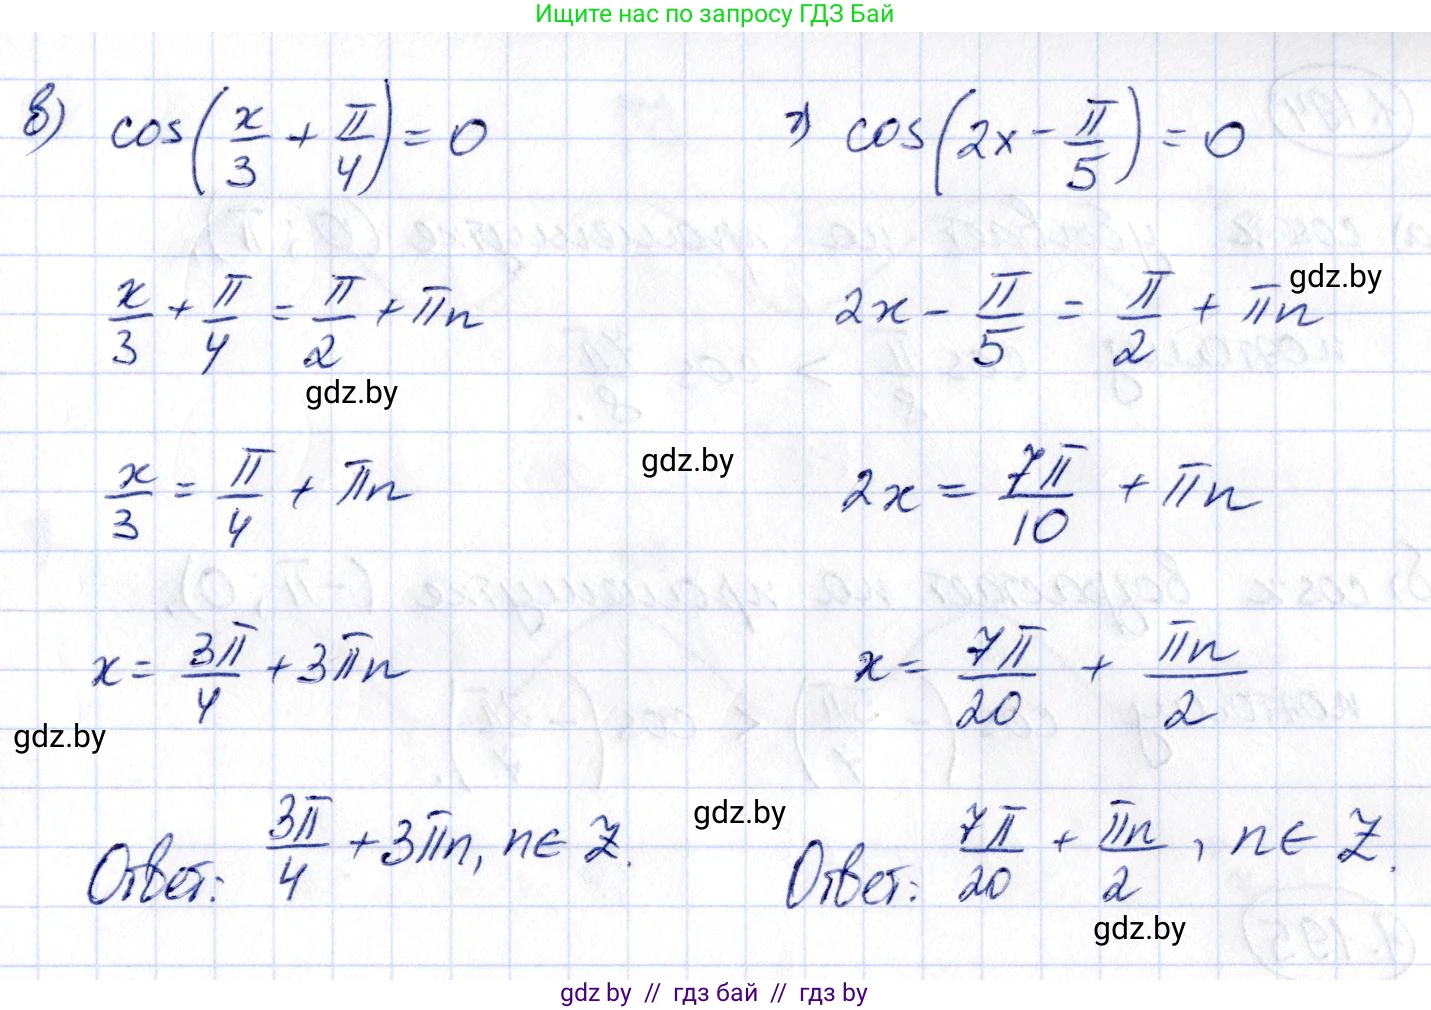 Ищите нас по запросу ГДЗ Бай
в) cos(x/3 + π/4) = 0
x/3 + π/4 = π/2 + πn
gdz.by
x/3 = π/4 + πn
x = 3π/4 + 3πn
gdz.by
Ответ: 3π/4 + 3πn, n ∈ Z.
г) cos(2x - π/5) = 0
gdz.by
2x - π/5 = π/2 + πn
gdz.by
2x = 7π/10 + πn
x = 7π/20 + πn/2
gdz.by
Ответ: 7π/20 + πn/2, n ∈ Z.
gdz.by
gdz by // гдз бай // гдз by